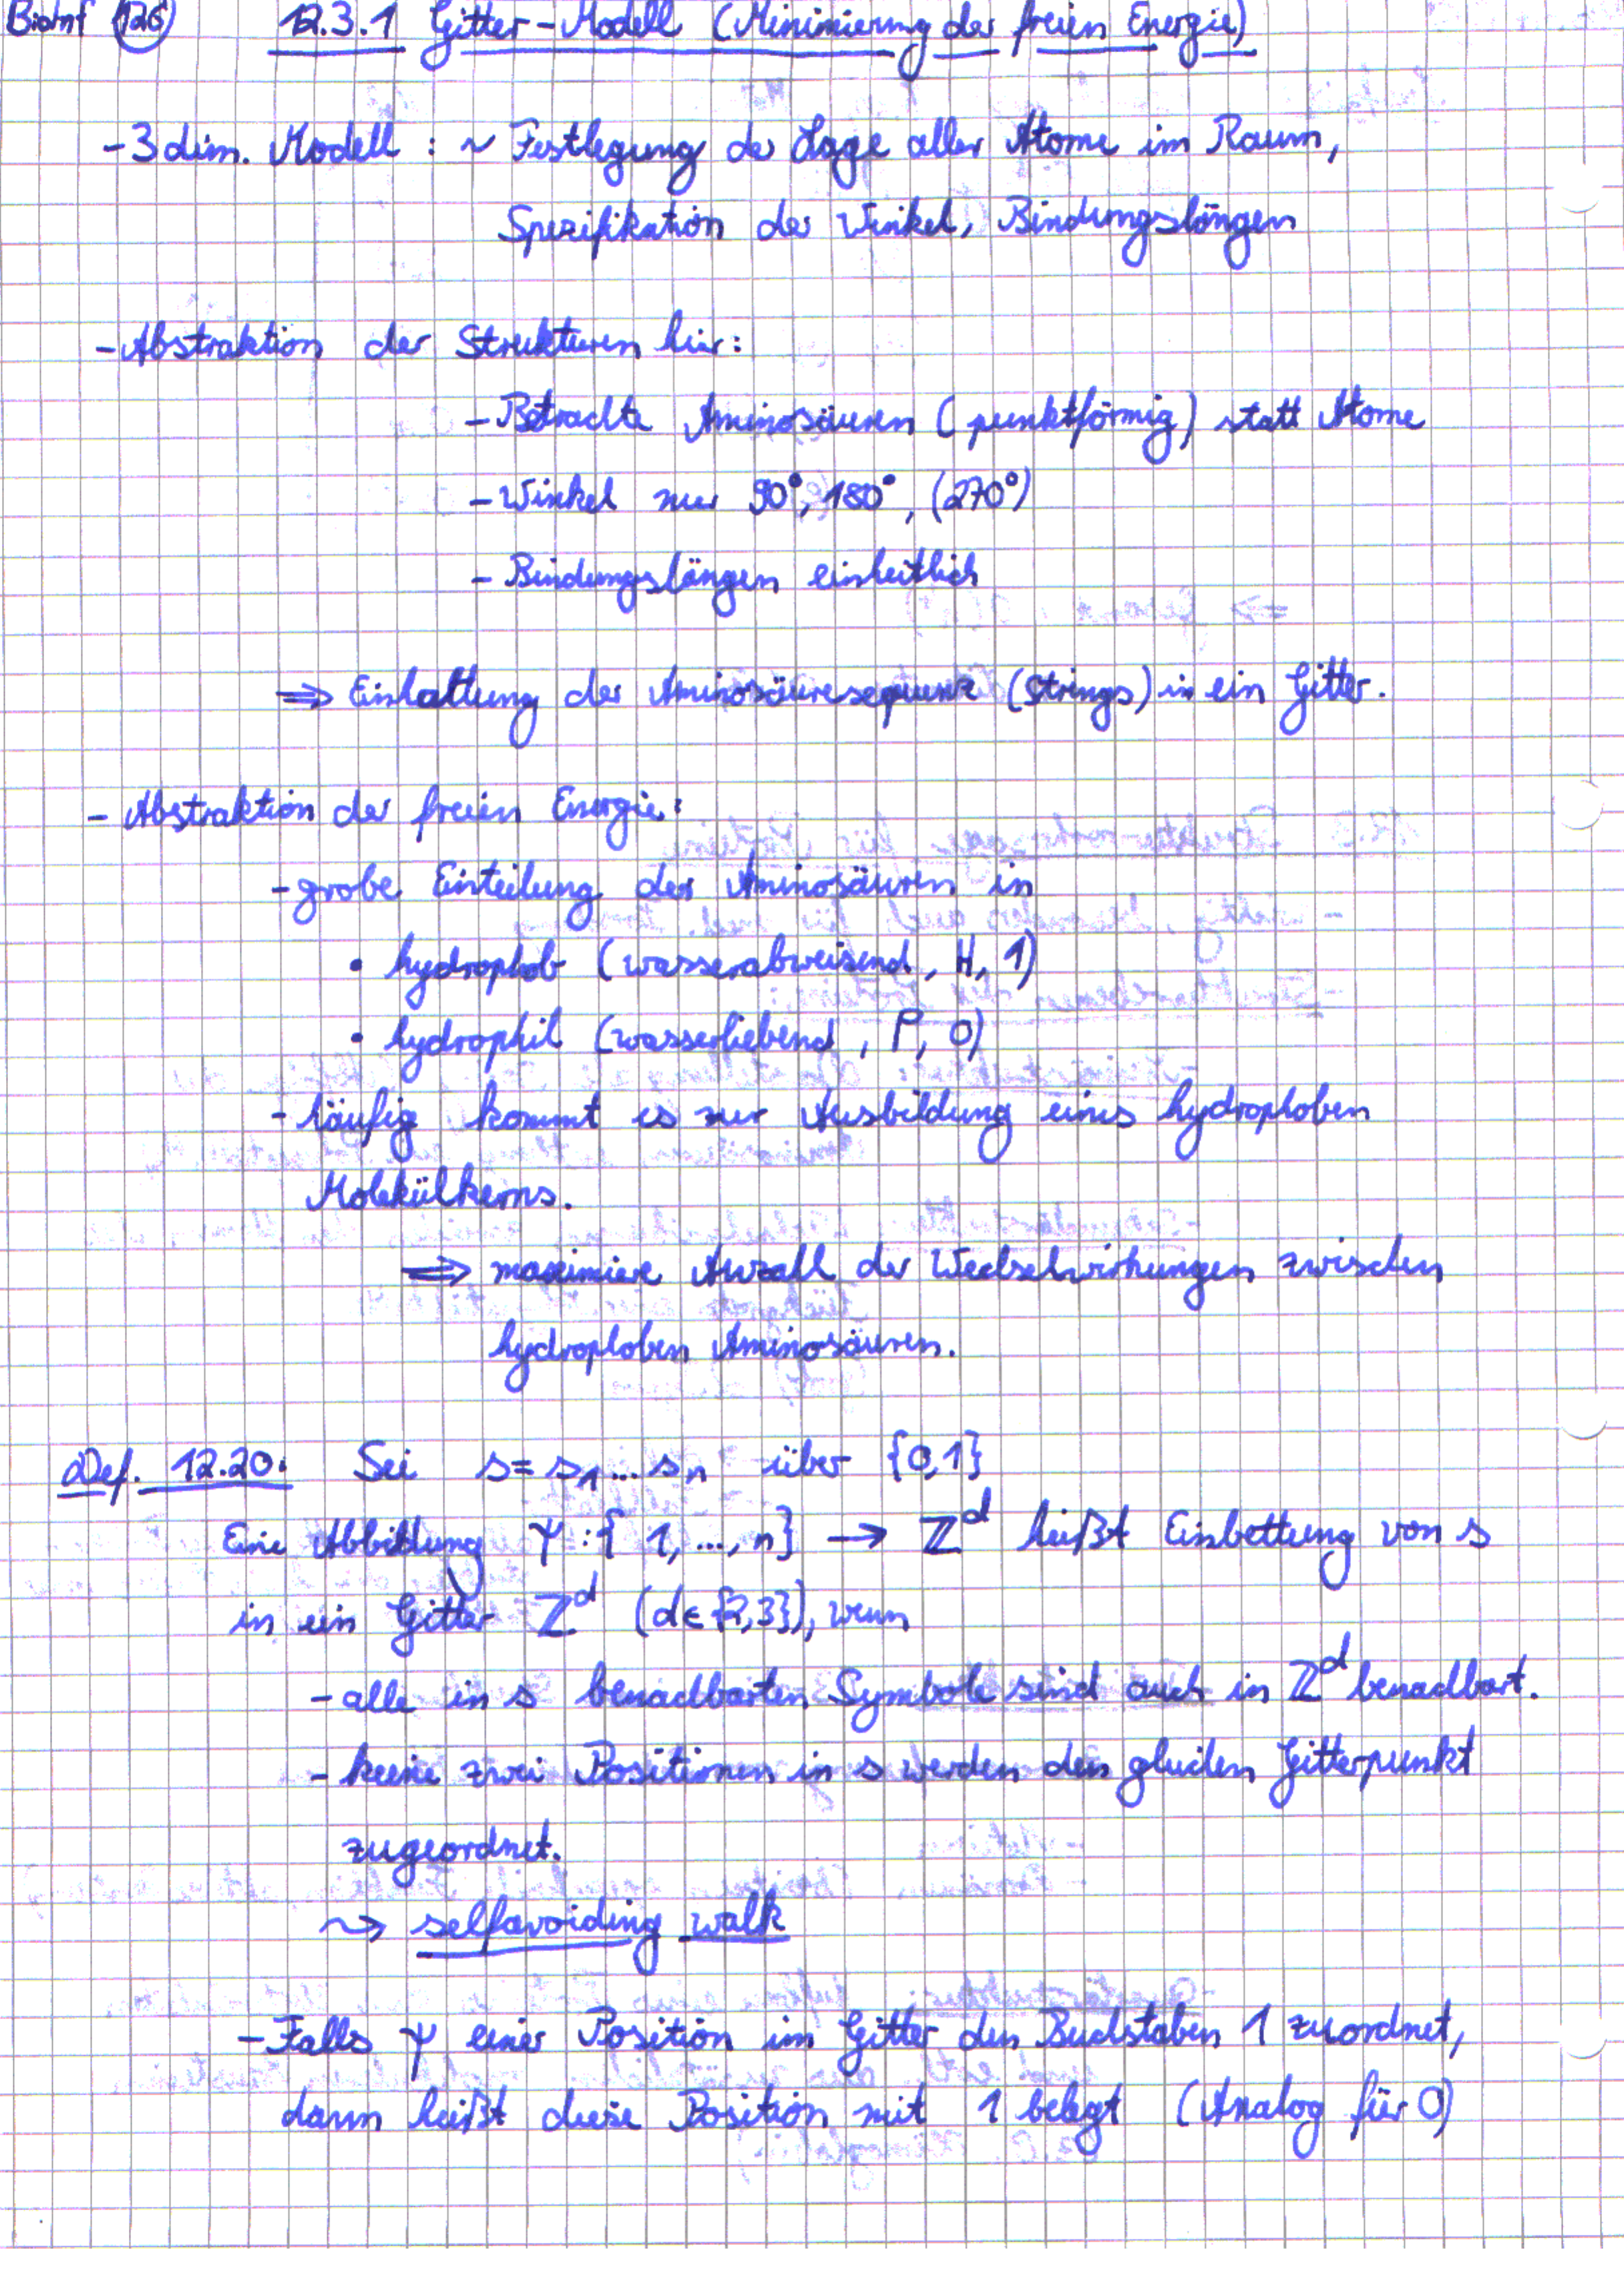 BioInf 126 12.3.1 Gitter-Modell (Minimierung der freien Energie)
- 3 dim. Modell : ~ Festlegung der Lage aller Atome im Raum,
Spezifikation der Winkel, Bindungslängen
- Abstraktion der Strukturen hier:
- Betrachte Aminosäuren (punktförmig) statt Atome
- Winkel nur 90°, 180°, (270°)
- Bindungslängen einheitlich
⇒ Einbettung der Aminosäuresequenz (Strings) in ein Gitter.
- Abstraktion der freien Energie:
- grobe Einteilung der Aminosäuren in
• hydrophob (wasserabweisend, H, 1)
• hydrophil (wasserliebend, P, 0)
- häufig kommt es zur Ausbildung eines hydrophoben
Molekülkerns.
⇒ maximiere Anzahl der Wechselwirkungen zwischen
hydrophoben Aminosäuren.
Def. 12.20: Sei s = s₁...sₙ über {0,1}
Eine Abbildung Ψ : {1, ..., n} → ℤᵈ heißt Einbettung von s
in ein Gitter ℤᵈ (d∈{2,3}), wenn
- alle in s benachbarten Symbole sind auch in ℤᵈ benachbart.
- keine zwei Positionen in s werden den gleichen Gitterpunkt
zugeordnet.
⇝ selfavoiding walk
- Falls Ψ einer Position im Gitter den Buchstaben 1 zuordnet,
dann heißt diese Position mit 1 belegt (Analog für 0)